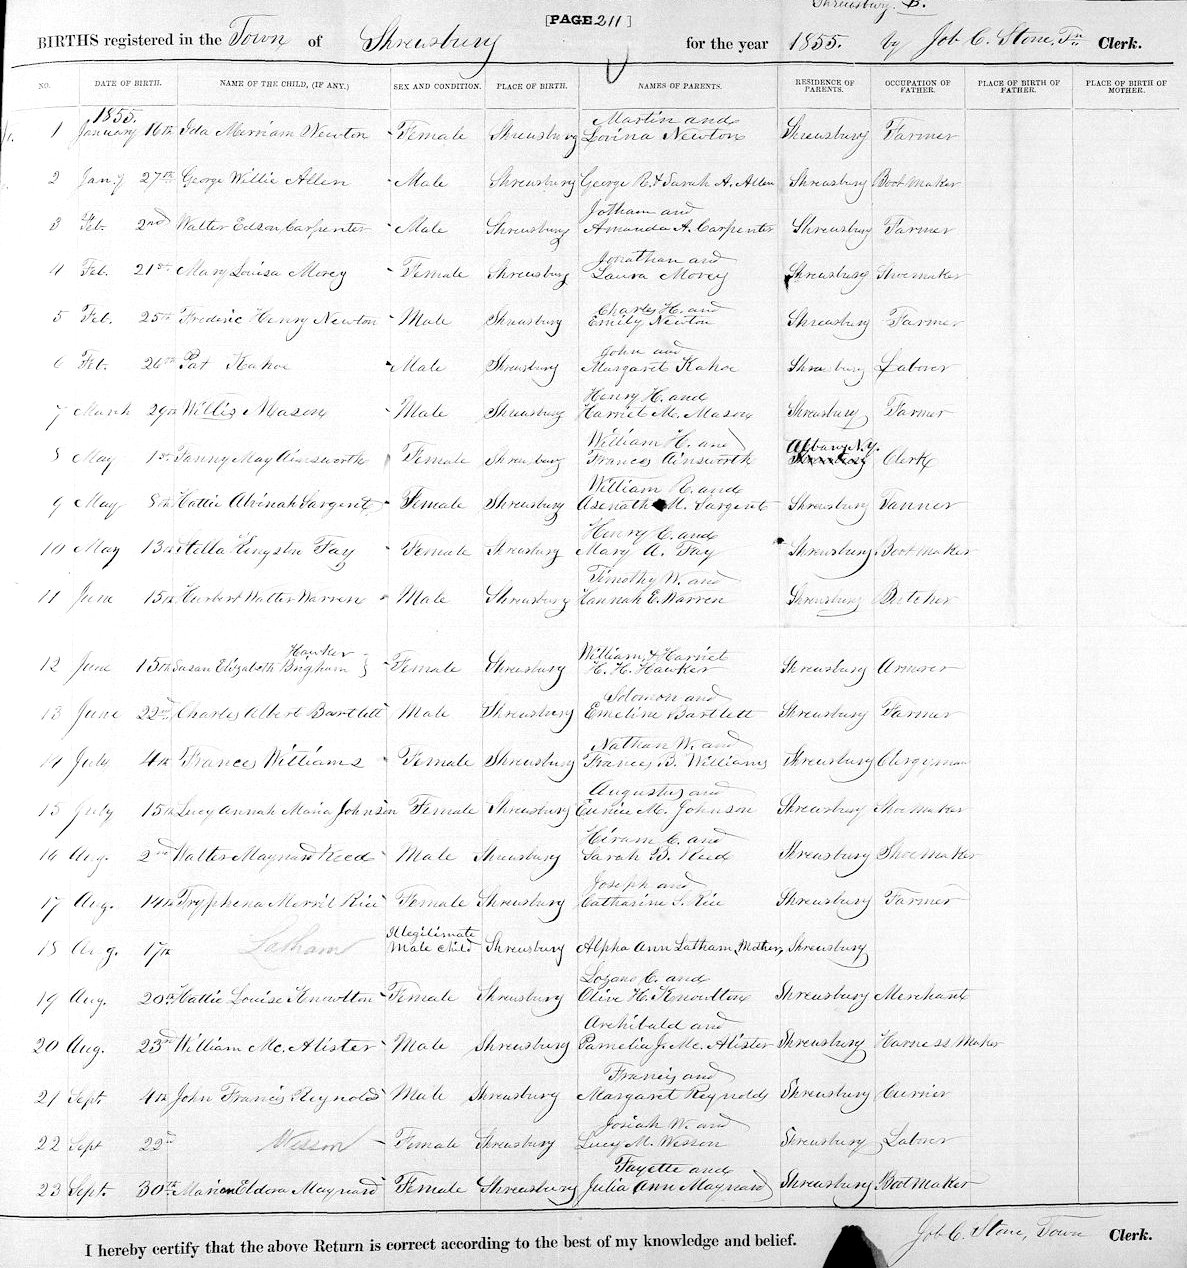 Shrewsbury. B.
[PAGE 211]
BIRTHS registered in the Town of Shrewsbury for the year 1855. by Job C. Stone, Tn Clerk.
NO. DATE OF BIRTH. NAME OF THE CHILD, (IF ANY.) SEX AND CONDITION. PLACE OF BIRTH. NAMES OF PARENTS. RESIDENCE OF PARENTS. OCCUPATION OF FATHER. PLACE OF BIRTH OF FATHER. PLACE OF BIRTH OF MOTHER.
1855.
Martin and
1 January 16th Ida Merriam Newton Female Shrewsbury Lovina Newton Shrewsbury Farmer
2 Jan'y 27th George Willie Allen Male Shrewsbury George R. & Sarah A. Allen Shrewsbury Bootmaker
Jotham and
3 Feb. 2nd Walter Edson Carpenter Male Shrewsbury Amanda A. Carpenter Shrewsbury Farmer
Jonathan and
4 Feb. 21st Mary Louisa Morey Female Shrewsbury Laura Morey Shrewsbury Shoemaker
Charles H. and
5 Feb. 25th Frederic Henry Newton Male Shrewsbury Emily Newton Shrewsbury Farmer
John and
6 Feb. 26th Pat Kahoe Male Shrewsbury Margaret Kahoe Shrewsbury Laborer
Henry H. and
7 March 29th Willis Mason Male Shrewsbury Harriet M. Mason Shrewsbury Farmer
William H. and Albany N.Y.
8 May 1st Fanny May Ainsworth Female Shrewsbury Frances Ainsworth Shrewsbury Clerk
William R. and
9 May 8th Hattie Alvinah Sargent Female Shrewsbury Asenath M. Sargent Shrewsbury Tanner
Henry C. and
10 May 13th Stella Kingston Fay Female Shrewsbury Mary A. Fay Shrewsbury Bootmaker
Timothy W. and
11 June 15th Hurbert Walter Warren Male Shrewsbury Hannah E. Warren Shrewsbury Butcher
Hawker William & Harriet
12 June 15th Susan Elizabeth Brigham } Female Shrewsbury H. H. Hawker Shrewsbury Armorer
Solomon and
13 June 22nd Charles Albert Bartlett Male Shrewsbury Emeline Bartlett Shrewsbury Farmer
Nathan W. and
14 July 4th Frances Williams Female Shrewsbury Frances B. Williams Shrewsbury Clergyman
Augustus and
15 July 15th Lucy Annah Maria Johnson Female Shrewsbury Eunice M. Johnson Shrewsbury Shoemaker
Hiram C. and
16 Aug. 2nd Walter Maynard Reed Male Shrewsbury Sarah B. Reed Shrewsbury Shoemaker
Joseph and
17 Aug. 14th Tryphena Merril Rice Female Shrewsbury Catharine S. Rice Shrewsbury Farmer
Illegitimate
18 Aug. 17th Latham Male Child Shrewsbury Alpha Ann Latham, Mother, Shrewsbury
Lozano C. and
19 Aug. 20th Hattie Louise Knowlton Female Shrewsbury Olive H. Knowlton Shrewsbury Merchant
Archibald and
20 Aug. 23rd William Mc. Alister Male Shrewsbury Pamelia J. Mc. Alister Shrewsbury Harness Maker
Francis and
21 Sept. 4th John Francis Reynolds Male Shrewsbury Margaret Reynolds Shrewsbury Currier
Josiah W. and
22 Sept 22nd Wesson Female Shrewsbury Lucy M. Wesson Shrewsbury Laborer
Fayette and
23 Sept. 30th Marion Eldora Maynard Female Shrewsbury Julia Ann Maynard Shrewsbury Bootmaker
I hereby certify that the above Return is correct according to the best of my knowledge and belief. Job C. Stone, Town Clerk.